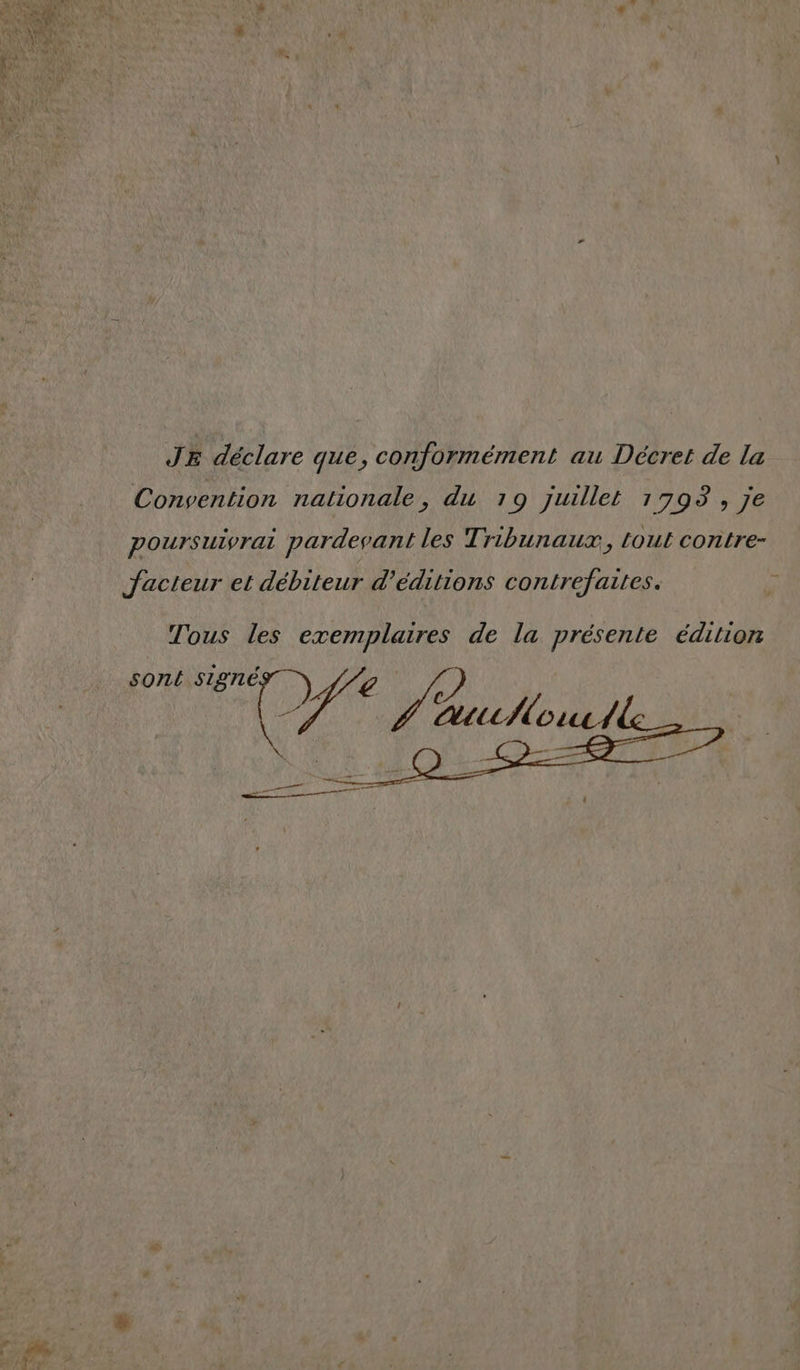 JE déclare que, conformément au Décret de la
Convention nationale, du 19 juillet 1793, je
poursuivrai pardevant les Tribunaux, tout contre-
facteur et débiteur d'éditions contrefaites.
Tous les exemplaires de la présente édition
sont signés Ve